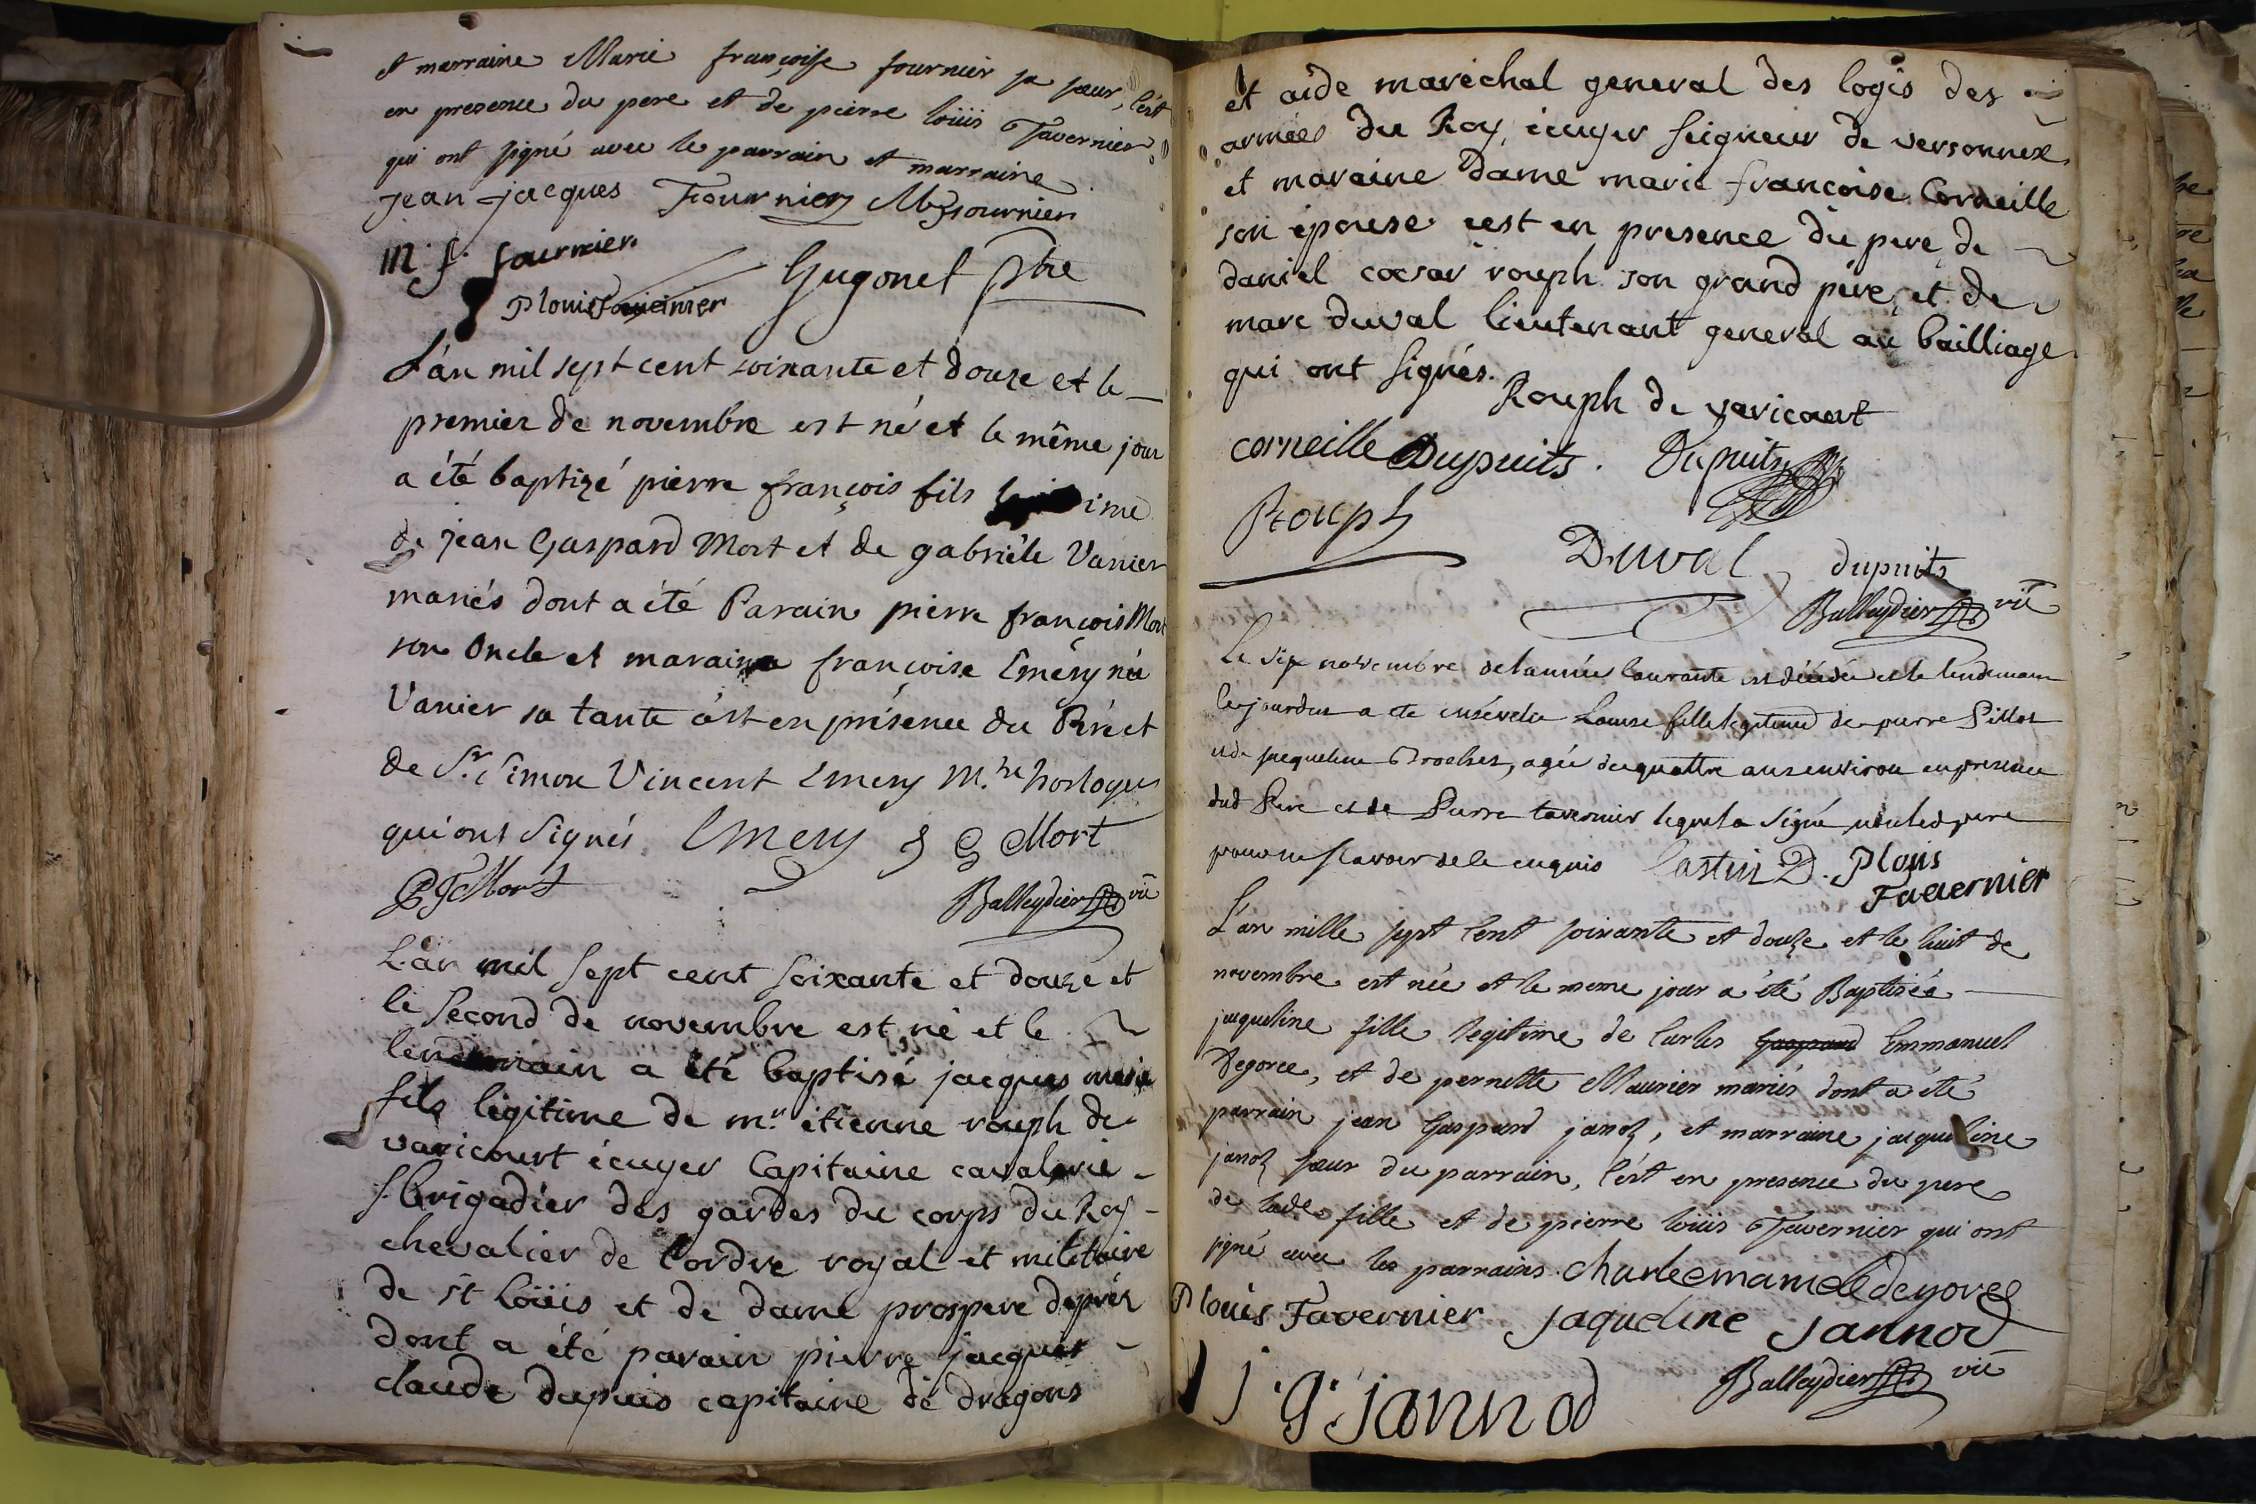 et marraine Marie françoise fournier sa sœur, c'est
en presence du pere et de pierre loüis Tavernier
qui ont signé avec le parrain et marraine
jean jacques Fournier
m f fournier
Plouis Tavernier Gugonet ptre
L'an mil sept cent soixante et douze et le
premier de novembre est né et le même jour
a été baptizé pierre françois fils
de jean Gaspard Mort et de gabrièle Vanier
mariés dont a été Parain pierre françois Mort
son Oncle et maraine françoise Emery née
Vanier sa tante c'ést en présence du Pére et
de Sr Simon Vincent Emery M.tre horloger
qui ont signés. Emery J G Mort
PF Mort Balleydier vic
L'an mil sept cent soixante et douze et
le second de novembre est né et le
lendemain a été baptisé jacques
fils légitime de mre étienne rouph de
varicourt écuyer Capitaine cavalerie
s brigadier des gardes du corps du Roy
chevalier de l'ordre royal et militaire
de st Loüis et de dame prospere
dont a été parain pierre jacques
claude dupuis capitaine de dragons
et aide maréchal general des logis des
armées du Roy, écuyer seigneur de versonnex
et maraine Dame marie françoise Corneille
son épouse cest en presence du pere, de
daniel cœsar rouph son grand pére, et de
marc duval lieutenant general au bailliage
qui ont signés.
Rouph de varicourt
corneille Dupuits. Dupuits
Rouph
Duval dupuits
Balleydier vic
Le six novembre de l'année Courante est décédée et le lendemain
a été ensévelie Louise fille legitime de pierre Pillot
et de jaqueline Broches, agée de quattre ans environ en presence
dud Pere et de Pierre tavernier lequel a signé non led pere
pour ne scavoir de ce enquis Castin D. Plouis
Tavernier
L'an mille sept cent soixante et douze et le huit de
novembre est née et le meme jour a été Baptisée
jaqueline fille legitime de Carles Gaspard Emmanuel
Degorce, et de pernette Maunier mariés dont a été
parrain jean Gaspard janod, et marraine jaqueline
janod sœur du parrain, c'est en presence du pere
de lade fille et de pierre loüis Tavernier qui ont
signé avec les parrains. charlemamelle degorce
Plouis Tavernier jaqueline jannod
Balleydier vic
j. g. jannod